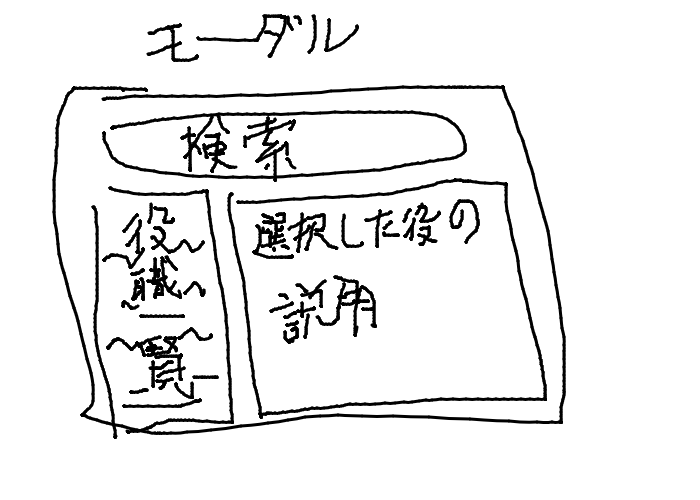 モーダル
検索
役
職
一
覧
選択した役の
説明